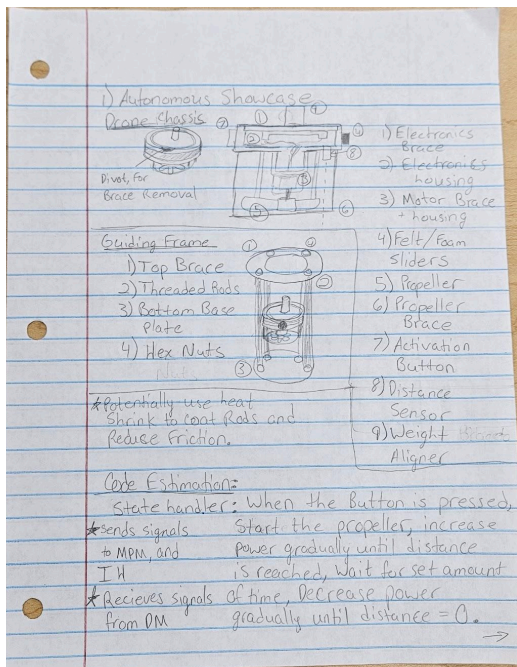 1) Autonomous Showcase
Drone Chassis
Divot, for
Brace Removal
7
1
9
4
2
8
3
5
6
1) Electronics
Brace
2) Electronics
housing
3) Motor Brace
+ housing
4) Felt/Foam
Sliders
5) Propeller
6) Propeller
Brace
7) Activation
Button
8) Distance
Sensor
9) Weight
Aligner
Guiding Frame
1) Top Brace
2) Threaded Rods
3) Bottom Base
Plate
4) Hex Nuts
1
4
2
3
*Potentially use heat
Shrink to coat Rods and
Reduce Friction.
Code Estimation:
State handler: When the Button is pressed,
Start the propeller, increase
power gradually until distance
is reached, Wait for set amount
of time, Decrease power
gradually until distance = 0.
*Sends signals
to MPM, and
IH
*Recieves signals
from DM
→